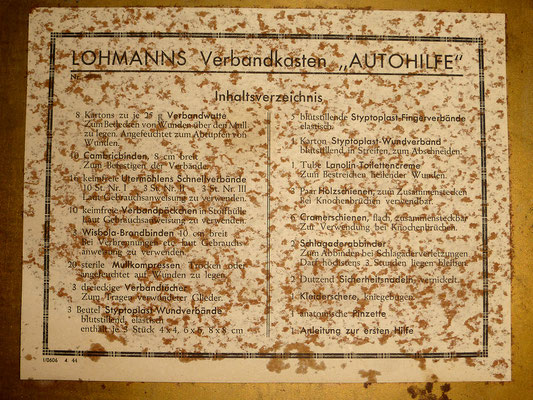 LOHMANNS Verbandkasten „AUTOHILFE"
Nr.
Inhaltsverzeichnis
8 Kartons zu je 25 g Verbandwatte
Zum Bedecken von Wunden über den Mull
zu legen. Angefeuchtet zum Abtupfen von
Wunden.
10 Cambricbinden, 8 cm breit
Zum Befestigen der Verbände.
16 keimfreie Utermöhlens Schnellverbände
10 St. Nr. I 3 St. Nr. II 3 St. Nr. III
Laut Gebrauchsanweisung zu verwenden.
10 keimfreie Verbandpäckchen in Stoffhülle
laut Gebrauchsanweisung zu verwenden.
Wisbola-Brandbinden 10 cm breit
Bei Verbrennungen etc. laut Gebrauchs-
anweisung zu verwenden.
20 sterile Mullkompressen Trocken oder
angefeuchtet auf Wunden zu legen.
3 dreieckige Verbandtücher
Zum Tragen verwundeter Glieder.
3 Beutel Styptoplast-Wundverbände
blutstillend, elastisch
enthält je 5 Stück 4x4, 6x6, 8x8 cm
5 blutstillende Styptoplast-Fingerverbände
elastisch.
1 Karton Styptoplast-Wundverband
blutstillend in Streifen, zum Abschneiden.
1 Tube Lanolin-Toilettencreme
Zum Bestreichen heilender Wunden.
Paar Holzschienen, zum Zusammenstecken
Bei Knochenbrüchen verwendbar.
6 Cramerschienen, flach, zusammensteckbar
Zur Verwendung bei Knochenbrüchen.
2 Schlagaderabbinder
Zum Abbinden bei Schlagaderverletzungen
Darf höchstens 3 Stunden liegen bleiben.
2 Dutzend Sicherheitsnadeln, vernickelt.
1 Kleiderschere, kniegebogen.
1 anatomische Pinzette
1 Anleitung zur ersten Hilfe
1/0606 4 44